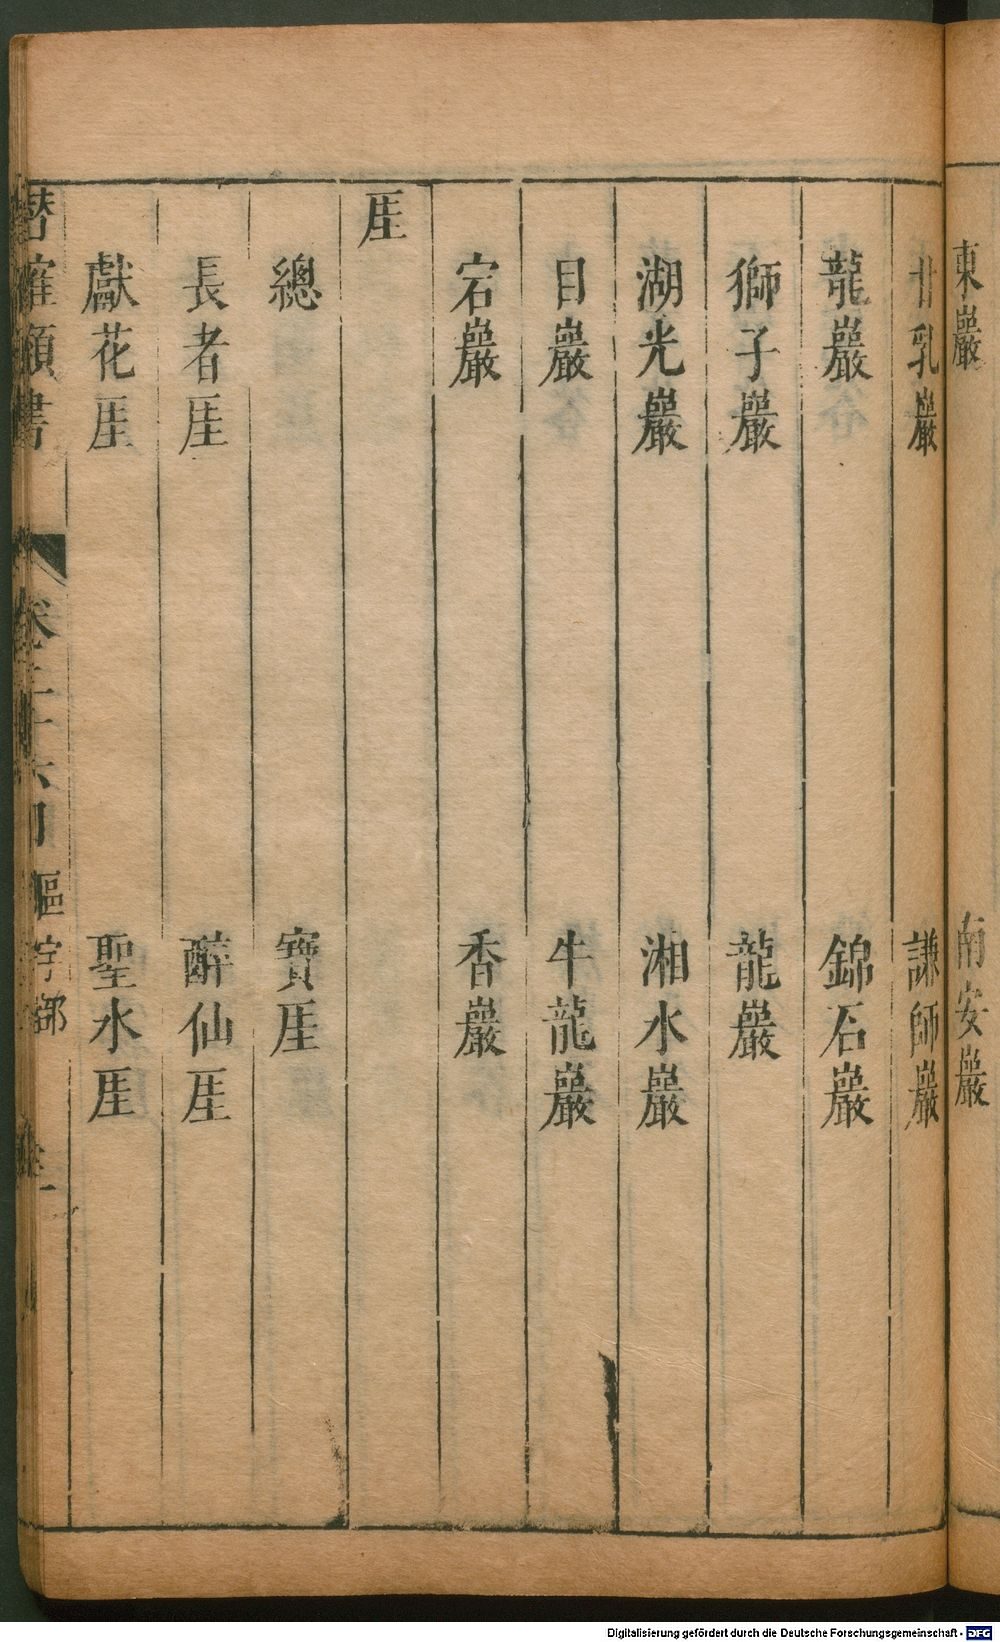 東巖 南安巖
甘乳巖 謙師巖
龍巖 錦石巖
獅子巖 龍巖
湖光巖 湘水巖
目巖 牛龍巖
宕巖 香巖
厓
總 寶厓
長者厓 醉仙厓
獻花厓 聖水厓
潛確類書 卷二十六 區宇部
Digitalisierung gefördert durch die Deutsche Forschungsgemeinschaft - DFG